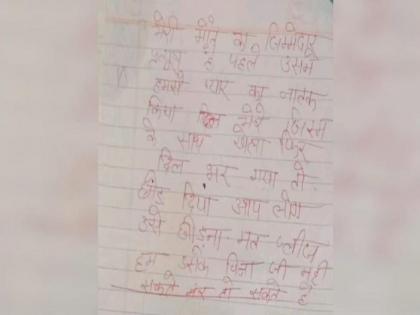 मेरी मौत का जिम्मेदार
है पहले उसने
हमसे प्यार का नाटक
किया फिर मेरे जिस्म
के साथ खेला फिर
दिल भर गया तो
छोड़ दिया आप लोग
उसे छोड़ना मत प्लीज
हम उसके बिना जी नहीं
सकते मर तो सकते है